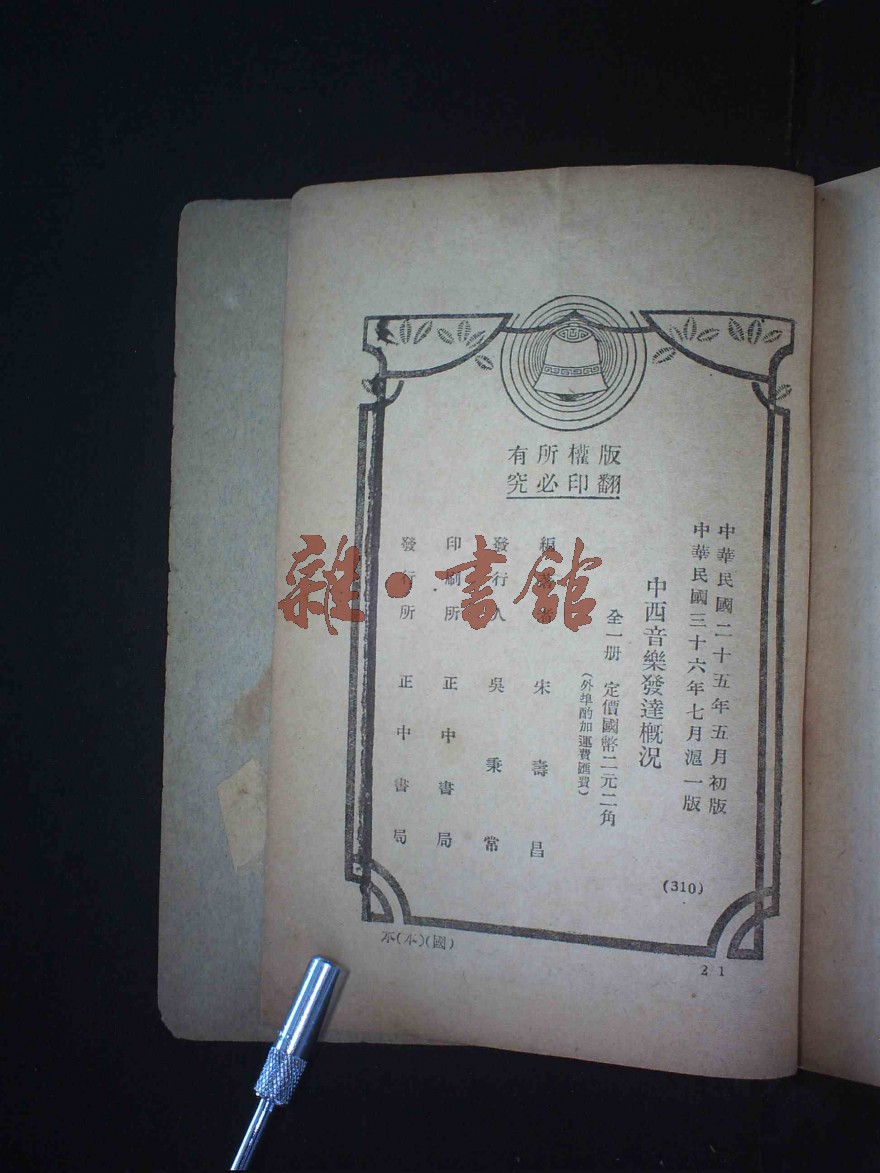 版權所有
翻印必究
中華民國二十五年五月初版
中華民國三十六年七月滬一版
中西音樂發達概况
全一册 定價國幣二元二角
(外埠酌加運費匯費)
編著者 朱壽昌
發行人 吳秉常
印刷所 正中書局
發行所 正中書局
(310)
(國)(本)
21
雜·書館